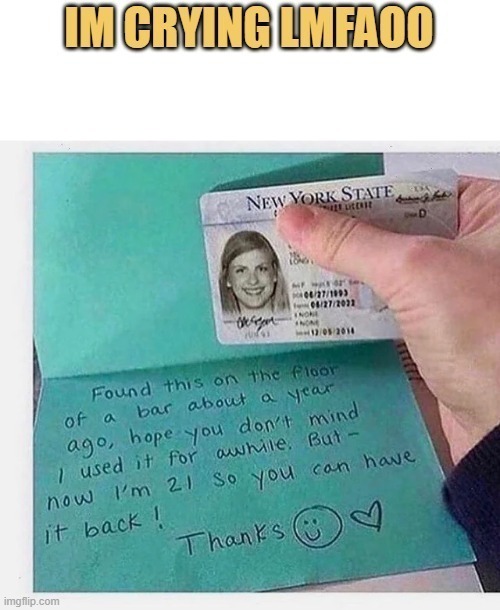 IM CRYING LMFAOO
NEW YORK STATE
USA
D
DOB 06/27/1993
06/27/2022
NONE
NONE
12/05/2016
Found this on the floor
of a bar about a year
ago, hope you don't mind
I used it for awhile. But-
now I'm 21 so you can have
it back!
Thanks
imgflip.com